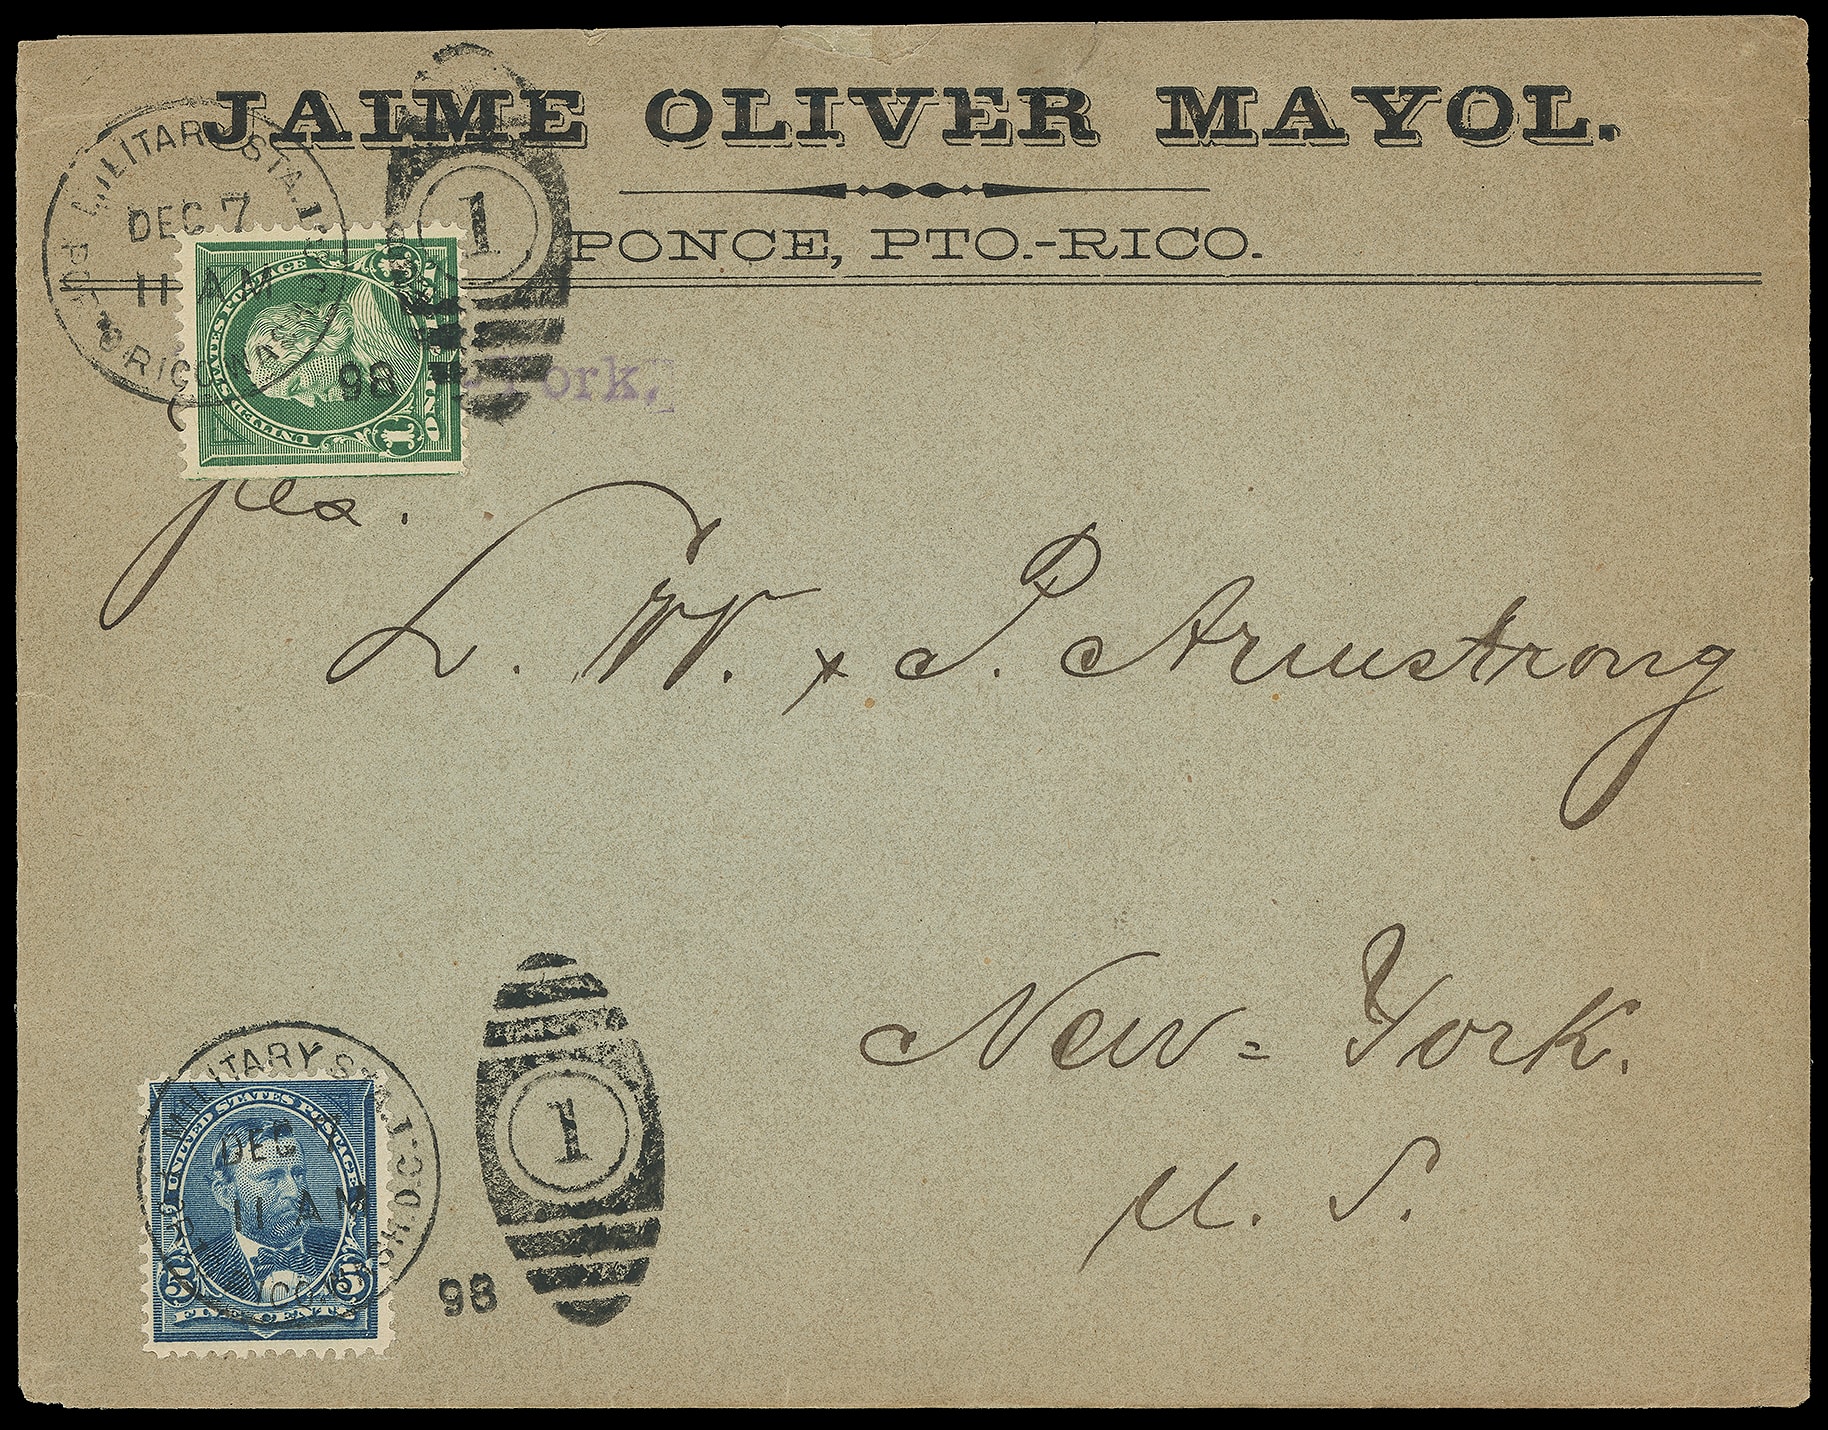 JAIME OLIVER MAYOL.
PONCE, PTO.-RICO.
MILITARY STA. 1
DEC 7
11 AM
98
1
UNITED STATES POSTAGE
1 ONE 1
ork.
L. W. & P. Armstrong
New=York.
U. S.
MILITARY STA. 1
DEC 7
11 AM
98
1
UNITED STATES POSTAGE
5 5
FIVE CENTS